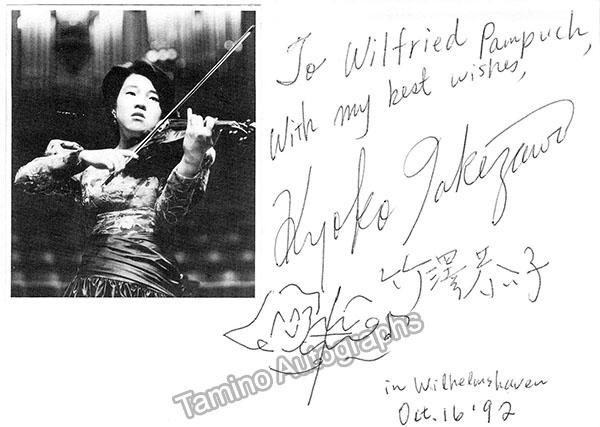 To Wilfried Pampuch,
With my best wishes,
Kyoko Takezawa
竹澤恭子
Tamino Autographs
in Wilhelmshaven
Oct. 16 '92